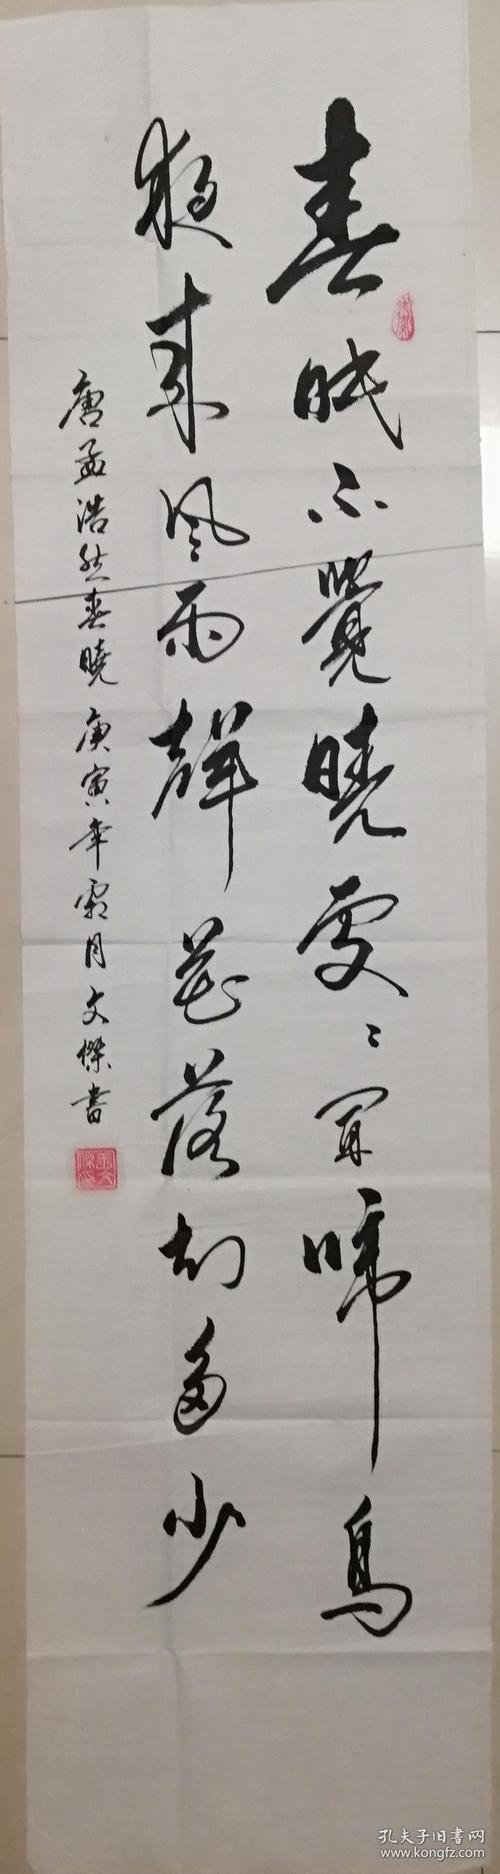 春眠不覺曉處〻聞啼鳥
夜來風雨聲花落知多少
唐孟浩然春曉 庚寅年霜月文傑書
孔夫子旧书网
www.kongfz.com